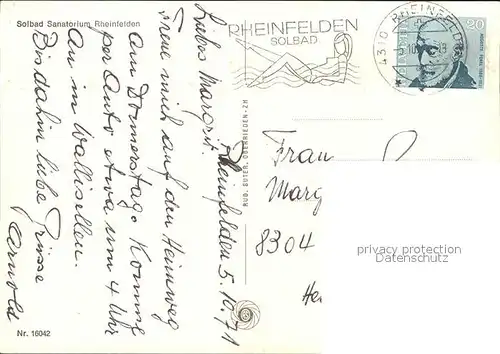 Solbad Sanatorium Rheinfelden
RHEINFELDEN
SOLBAD
4310 RHEINFELDEN
HELVETIA
20
Rheinfelden 5.10.71
Liebes Margrit.
Freue mich auf den Heimweg
am Donnerstag. Komme
per Auto etwa um 4 Uhr
an in Wallisellen.
Bis dahin liebe Grüsse
Arnold
RUD. SUTER, OBERRIEDEN-ZH
Frau
Marg
8304
privacy protection
Vermerk
Nr. 16042